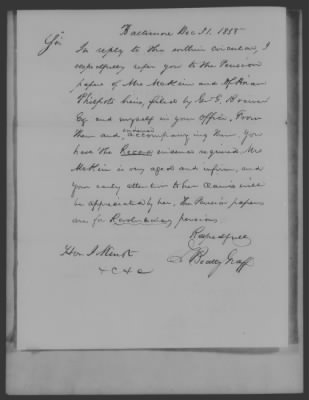 Baltimore Dec 31. 1855
Sir
In reply to the within circular, I
respectfully refer you to the Pension
papers of Mrs McKim and of Brian
Philpots heirs, filed by Geo. E.
Eq and myself in your office. From
them and evidence accompanying them, you
have the Record evidence required. Mrs
McKim is very aged and infirm, and
your early attention to her claims will
be appreciated by her. The Pension papers
are for Revolutionary pensions
Respectfully
Hon. J. Minot
&c &c